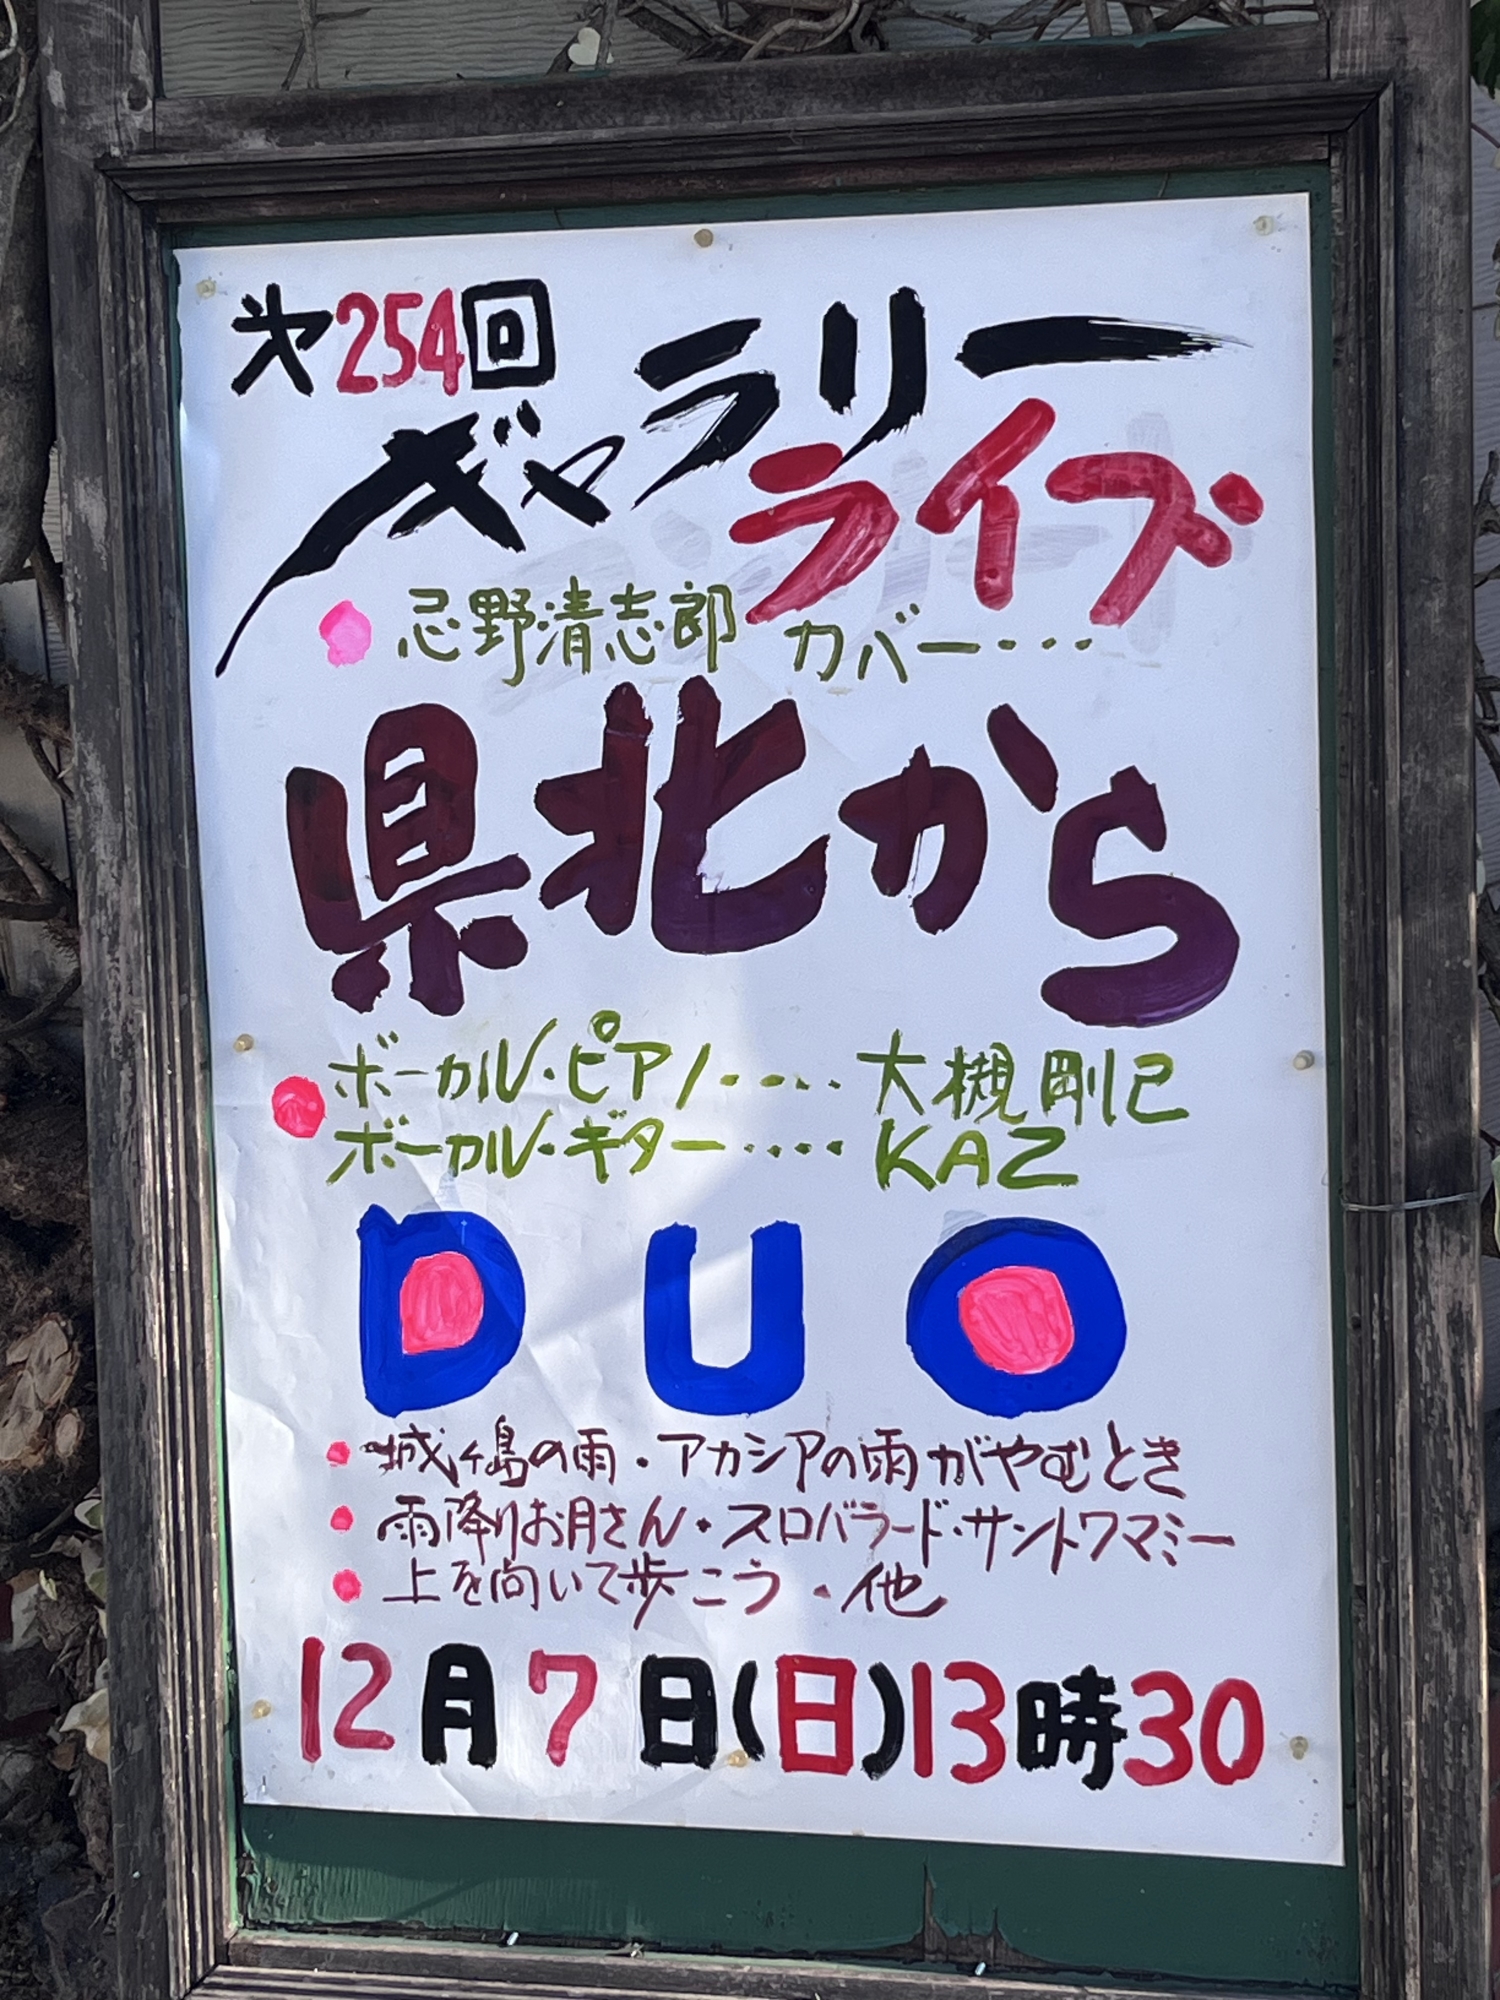 第254回
ギャラリー
ライブ
忌野清志郎 カバー・・・
県北から
ボーカル・ピアノ・・・・大槻剛己
ボーカル・ギター・・・・KAZ
DUO
・城ヶ島の雨・アカシアの雨がやむとき
・雨降りお月さん・スローバラード・サントワマミー
・上を向いて歩こう・他
12月7日(日)13時30